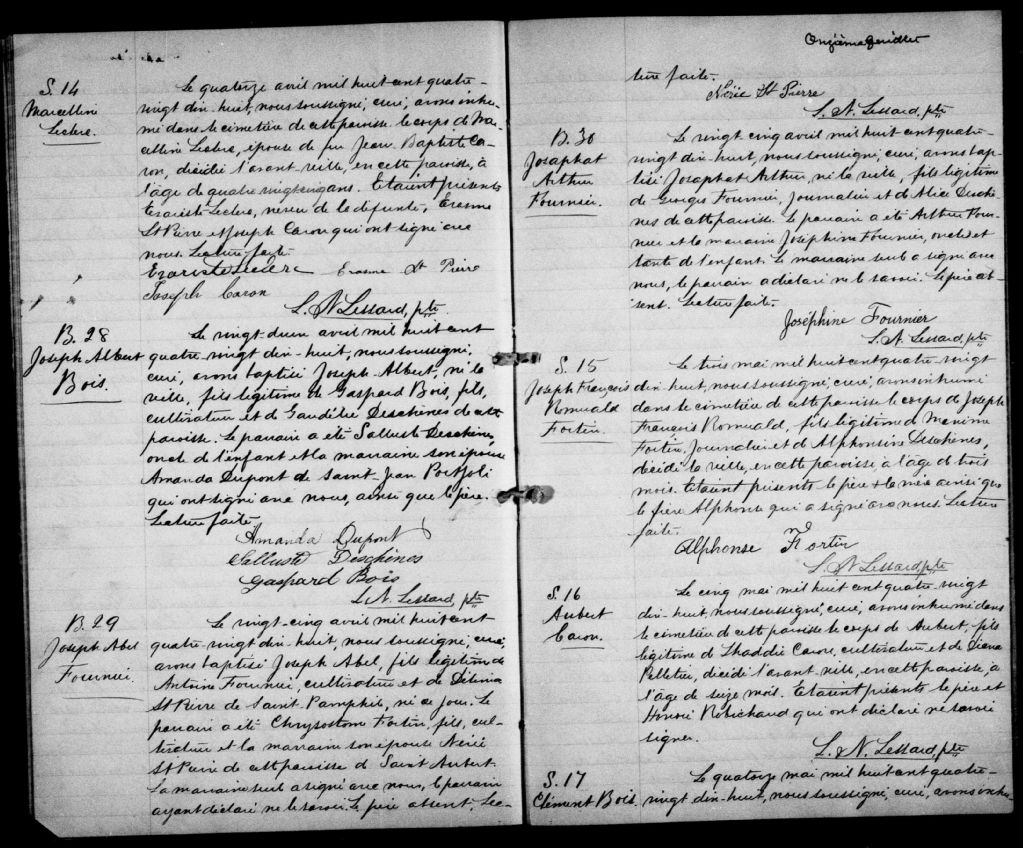 S. 14
Marcelline
Leclerc.
Le quatorze avril mil huit cent quatre-
vingt dix-huit, nous soussigné, curé, avons inhu-
mé dans le cimetière de cette paroisse le corps de Mar-
celline Leclerc, épouse de feu Jean Baptiste Ca-
ron, décédée l'avant-veille, en cette paroisse, à
l'âge de quatre vingt cinq ans. Etaient présents
Evariste Leclerc, neveu de la défunte, Erasme
St Pierre et Joseph Caron qui ont signé avec
nous. Lecture faite.
Evariste Leclerc Erasme St Pierre
Joseph Caron
L. N. Lessard, ptre
B. 28
Joseph Albert
Bois.
Le vingt deux avril mil huit cent
quatre-vingt dix-huit, nous soussigné,
curé, avons baptisé Joseph-Albert, né la
veille, fils légitime de Gaspard Bois, fils,
cultivateur et de Gaudélie Deschènes de cette
paroisse. Le parrain a été Salluste Deschènes,
oncle de l'enfant et la marraine son épouse
Amanda Dupont de Saint-Jean Port Joli
qui ont signé avec nous, ainsi que le père.
Lecture faite.
Amanda Dupont
Salluste Deschênes
Gaspard Bois
L. N. Lessard, ptre
B. 29
Joseph Abel
Fournier.
Le vingt-cinq avril mil huit cent
quatre-vingt dix-huit, nous soussigné, curé,
avons baptisé Joseph Abel, fils légitime de
Antoine Fournier, cultivateur et de Délima
St Pierre de Saint Pamphile, né ce jour. Le
parrain a été Chrysostome Fortin, fils, cul-
tivateur et la marraine son épouse Nérée
St Pierre de cette paroisse de Saint Aubert.
La marraine seule a signé avec nous, le parrain
ayant déclaré ne le savoir. Le père absent, Lec-
Onzième feuillet
ture faite.
Nérée St Pierre
L. N. Lessard, ptre
B. 30
Josaphat
Arthur
Fournier.
Le vingt cinq avril mil huit cent quatre-
vingt dix-huit, nous soussigné, curé, avons bap-
tisé Josaphat Arthur, né la veille, fils légitime
de Georges Fournier, Journalier et de Alice Desché-
nes de cette paroisse. Le parrain a été Arthur Four-
nier et la marraine Joséphine Fournier, oncle et
tante de l'enfant. La marraine seule a signé avec
nous, le parrain a déclaré ne le savoir. Le père ab-
sent. Lecture faite.
Joséphine Fournier
L. N. Lessard, ptre
S. 15
Joseph François
Romuald
Fortin.
Le trois mai mil huit cent quatre-vingt
dix-huit, nous soussigné, curé, avons inhumé
dans le cimetière de cette paroisse le corps de Joseph
François Romuald, fils légitime de Maxime
Fortin, Journalier et de Alphonsine Deschènes,
décédé la veille, en cette paroisse à l'âge de trois
mois. Etaient présents le père & la mère ainsi que
le frère Alphonse qui a signé avec nous. Lecture
faite.
Alphonse Fortin
L. N. Lessard, ptre
S. 16
Aubert
Caron.
Le cinq mai mil huit cent quatre-vingt
dix-huit, nous soussigné, curé, avons inhumé dans
le cimetière de cette paroisse le corps de Aubert, fils
légitime de Thaddée Caron, cultivateur et de Diana
Pelletier, décédé l'avant-veille, en cette paroisse, à
l'âge de seize mois. Etaient présents le père et
Honoré Robichaud qui ont déclaré ne savoir
signer.
L. N. Lessard, ptre
S. 17
Clément Bois.
Le quatorze mai mil huit cent quatre-
vingt dix-huit, nous soussigné, curé, avons inhu-